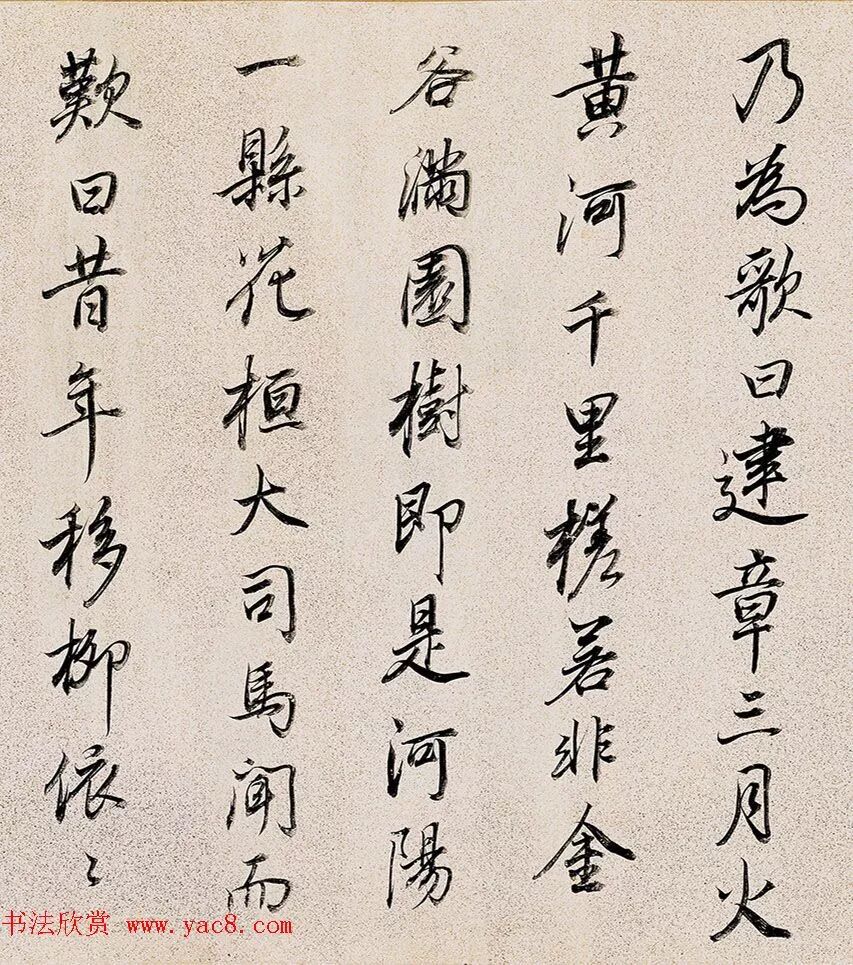 乃為歌曰建章三月火
黄河千里槎若非金
谷滿園樹即是河陽
一縣花桓大司馬聞而
歎曰昔年移柳依〻
书法欣赏 www.yac8.com